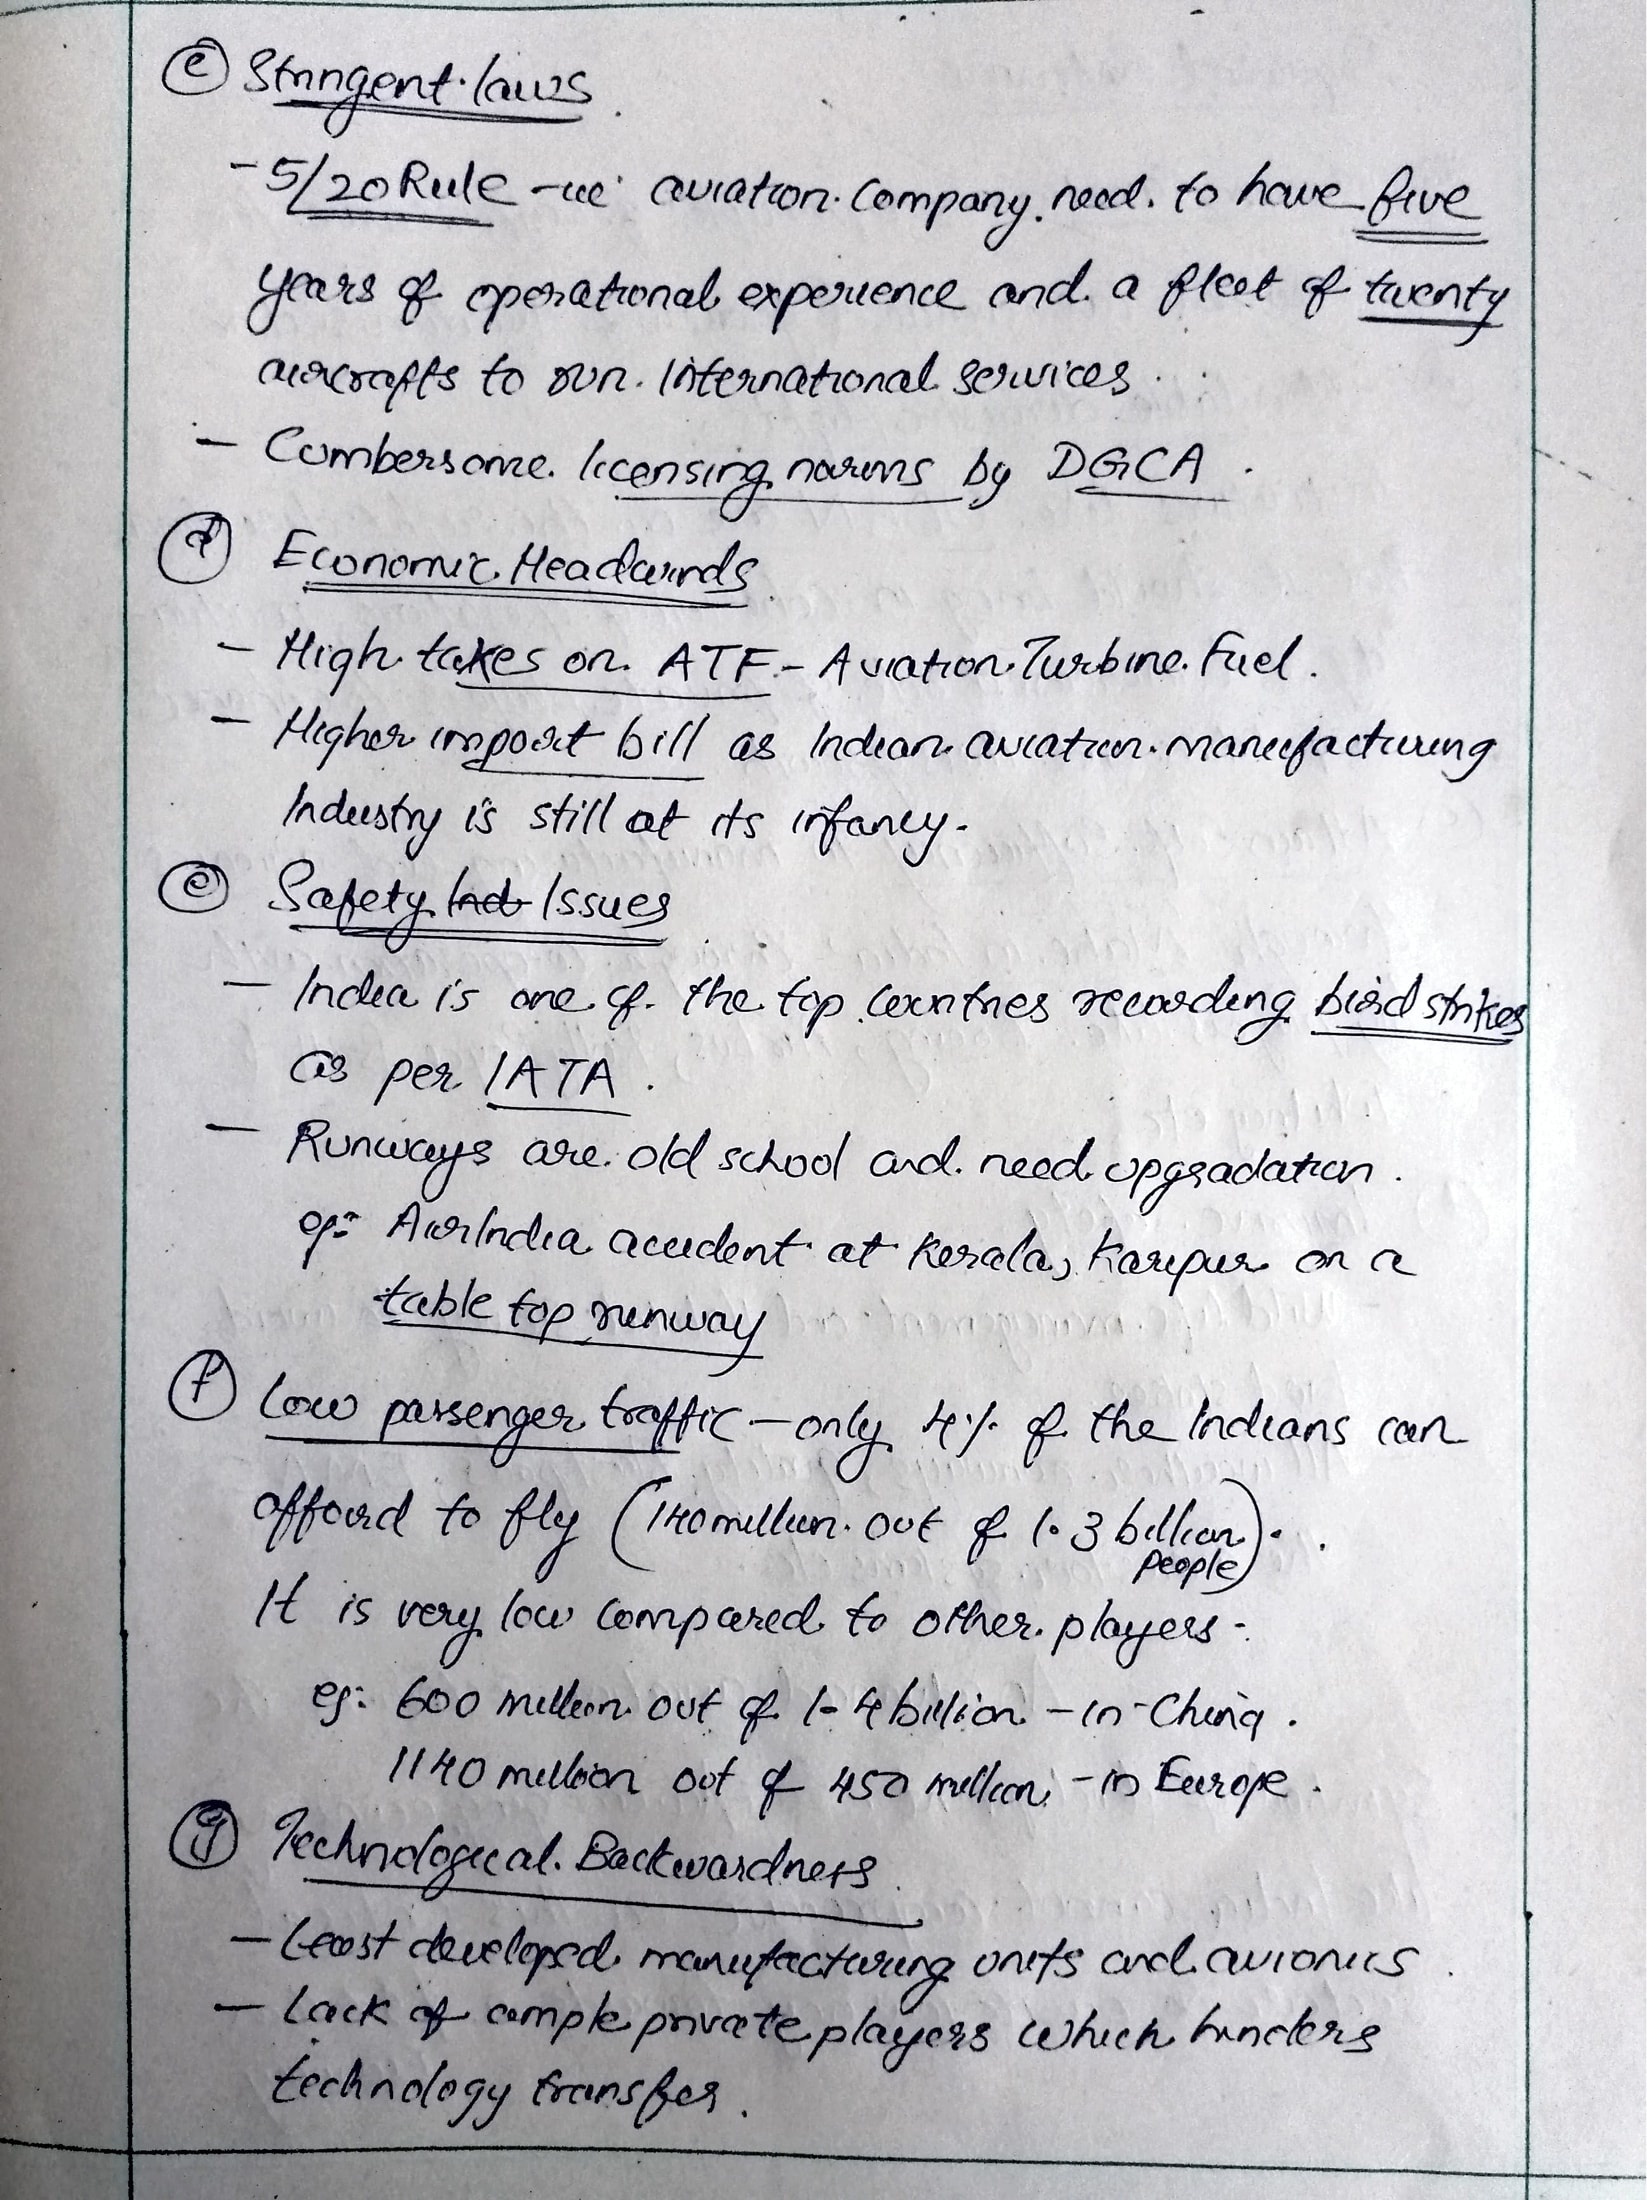 (c) Stringent laws
- 5/20 Rule - ie aviation company need to have five
years of operational experience and a fleet of twenty
aircrafts to run International services.
- Cumbersome licensing norms by DGCA.
(d) Economic Headwinds
- High taxes on ATF - Aviation Turbine Fuel.
- Higher import bill as Indian aviation manufacturing
Industry is still at its infancy.
(e) Safety Ind Issues
- India is one of the top countries recording bird strikes
as per IATA.
- Runways are old school and need upgradation.
eg:- AirIndia accident at Kerala, Karipur on a
table top runway
(f) Low passenger traffic - only 4% of the Indians can
afford to fly (140 million out of 1.3 billion people).
It is very low compared to other players -
eg: 600 million out of 1.4 billion - in China.
1140 million out of 450 million - in Europe.
(g) Technological Backwardness
- Least developed manufacturing units and avionics.
- Lack of ample private players which hinders
technology transfer.